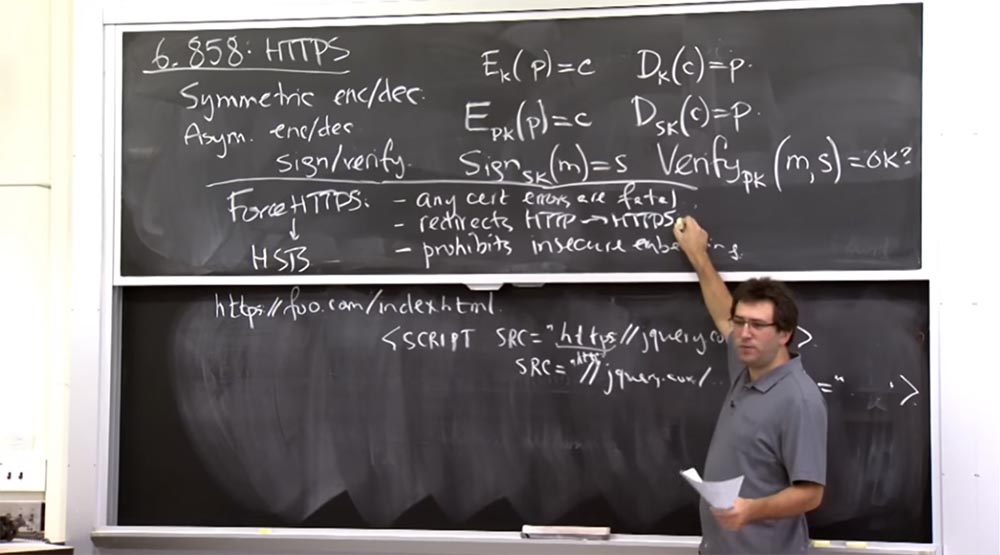 6.858: HTTPS
Symmetric enc/dec. E_K(p)=c D_K(c)=p.
Asym. enc/dec E_PK(p)=c D_SK(c)=p.
sign/verify. Sign_SK(m)=s Verify_PK(m,s)=OK?
ForceHTTPS: - any cert errors are fatal
↓ - redirects HTTP → HTTPS
HSTS - prohibits insecure
https://foo.com/index.html.
<SCRIPT SRC="https://jquery.co >.
SRC="//jquery.com/.. =" . ">